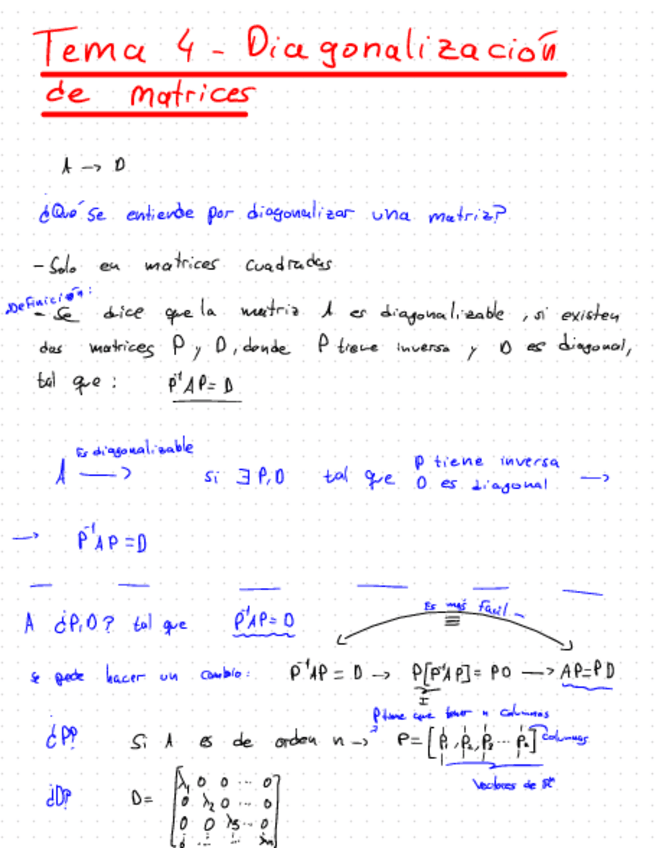 Tema 4 - Diagonalización
de matrices
A → D
¿Qué se entiende por diagonalizar una matriz?
- Solo en matrices cuadradas
Definición:
- Se dice que la matriz A es diagonalizable, si existen
dos matrices P y D, donde P tiene inversa y D es diagonal,
tal que: P⁻¹AP = D
Es diagonalizable
A → si ∃ P, D tal que P tiene inversa
D es diagonal →
→ P⁻¹AP = D
Es más fácil
A ¿P, D? tal que P⁻¹AP = D
se pede hacer un cambio: P⁻¹AP = D → P[P⁻¹AP] = PD → AP = PD
I
P tiene que tener n columnas
¿P? Si A es de orden n → P = [P₁, P₂, P₃ ... Pₙ] columnas
Vectores de
¿D? D = [λ₁ 0 0 ... 0
0 λ₂ 0 ... 0
0 0 λ₃ ... 0
⋮ ... ... λₙ]